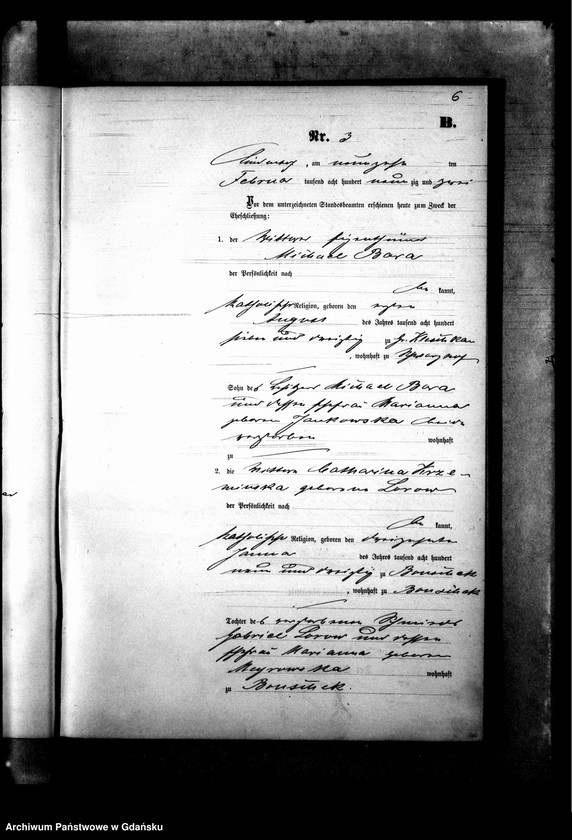 6
B.
Nr. 3
, am neunzehn ten
Februar tausend acht hundert neun zig und zwei
Vor dem unterzeichneten Standesbeamten erschienen heute zum Zweck der
Eheschließung:
1. der Wittwer Eigenthümer
Michael Bara
der Persönlichkeit nach
kannt,
katholischer Religion, geboren den ersten
August des Jahres tausend acht hundert
sieben und dreißig zu
, wohnhaft zu
Sohn des Besitzers Michael Bara
und dessen Ehefrau Marianna
geborene Jankowska beide
verstorben wohnhaft
zu
2. die Wittwe Catharina Krze-
minska geborene Lorow
der Persönlichkeit nach
kannt,
katholischer Religion, geboren den dreizehnten
Januar des Jahres tausend acht hundert
neun und dreißig zu Bonschek
, wohnhaft zu Bonschek
Tochter des verstorbenen Schmieds
Gabriel Lorow und dessen
Ehefrau Marianna geborene
wohnhaft
zu Bonschek.
Archiwum Państwowe w Gdańsku